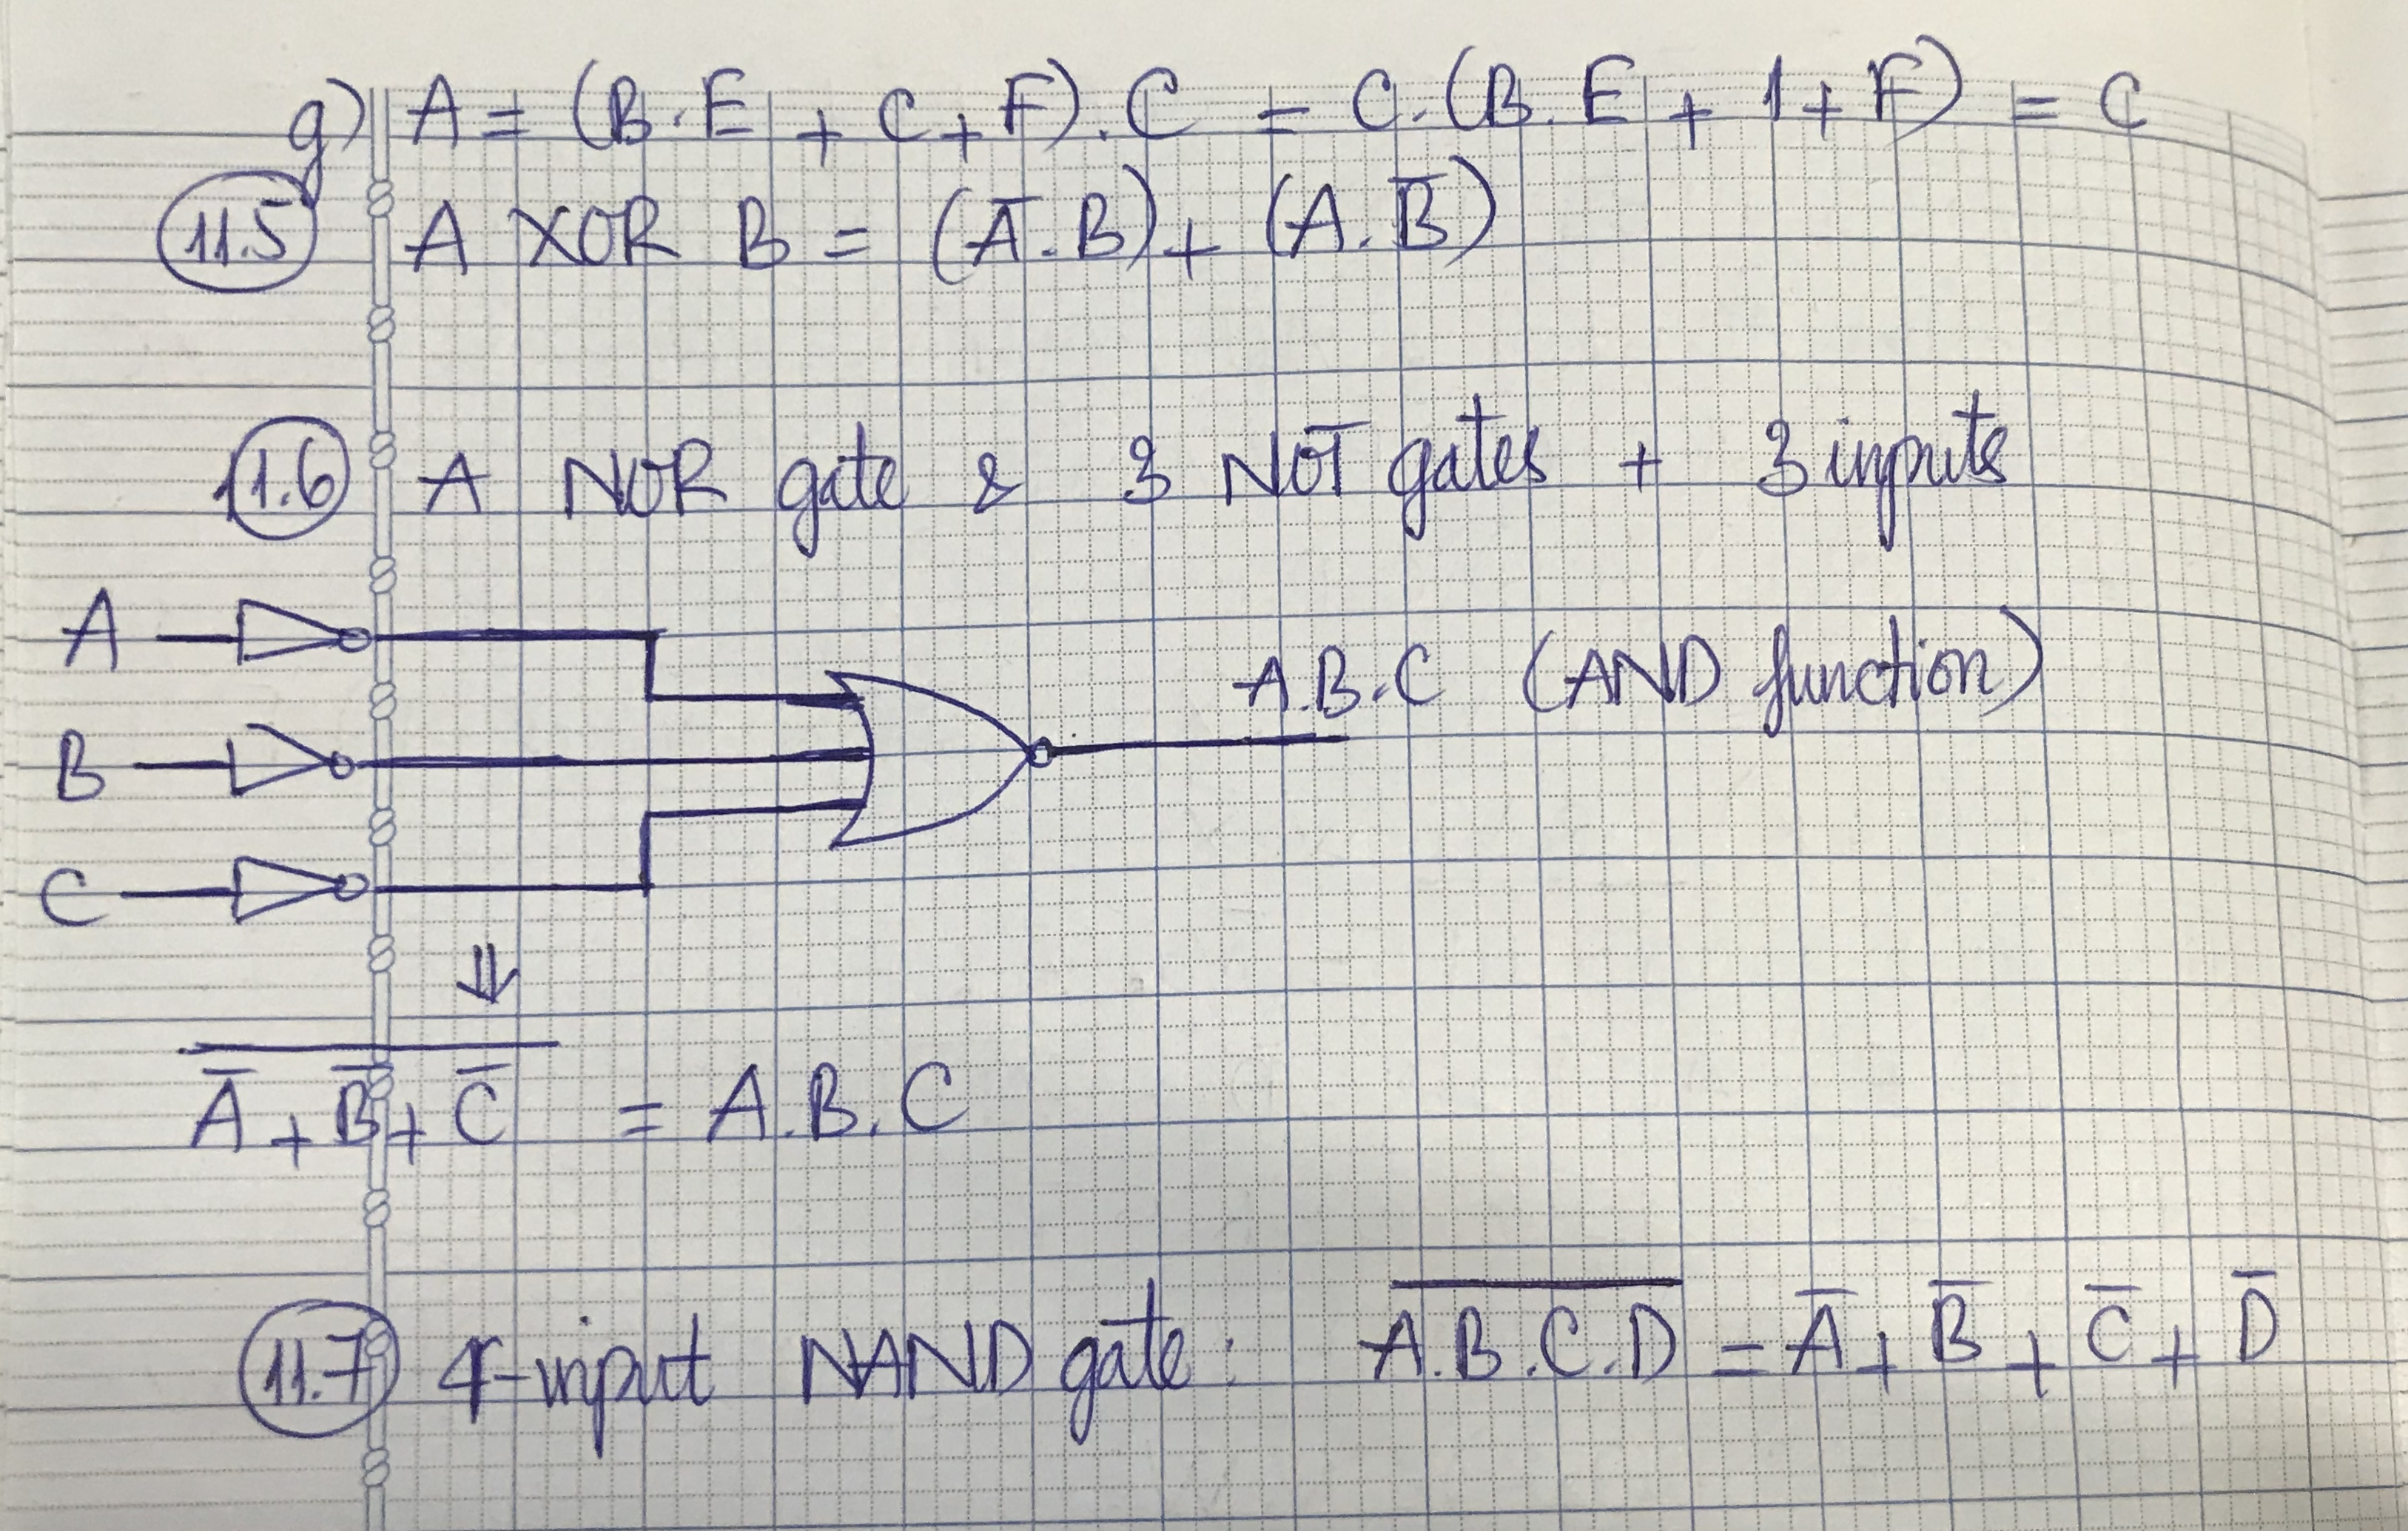 g) A = (B.E + C + F).C = C.(B.E + 1 + F) = C
11.5 A XOR B = (A̅.B) + (A.B̅)
11.6 A NOR gate & 3 NOT gates + 3 inputs
A
A.B.C (AND function)
B
C
⇓
\overline{A̅ + B̅ + C̅} = A.B.C
11.7 4-input NAND gate: \overline{A.B.C.D} = A̅ + B̅ + C̅ + D̅